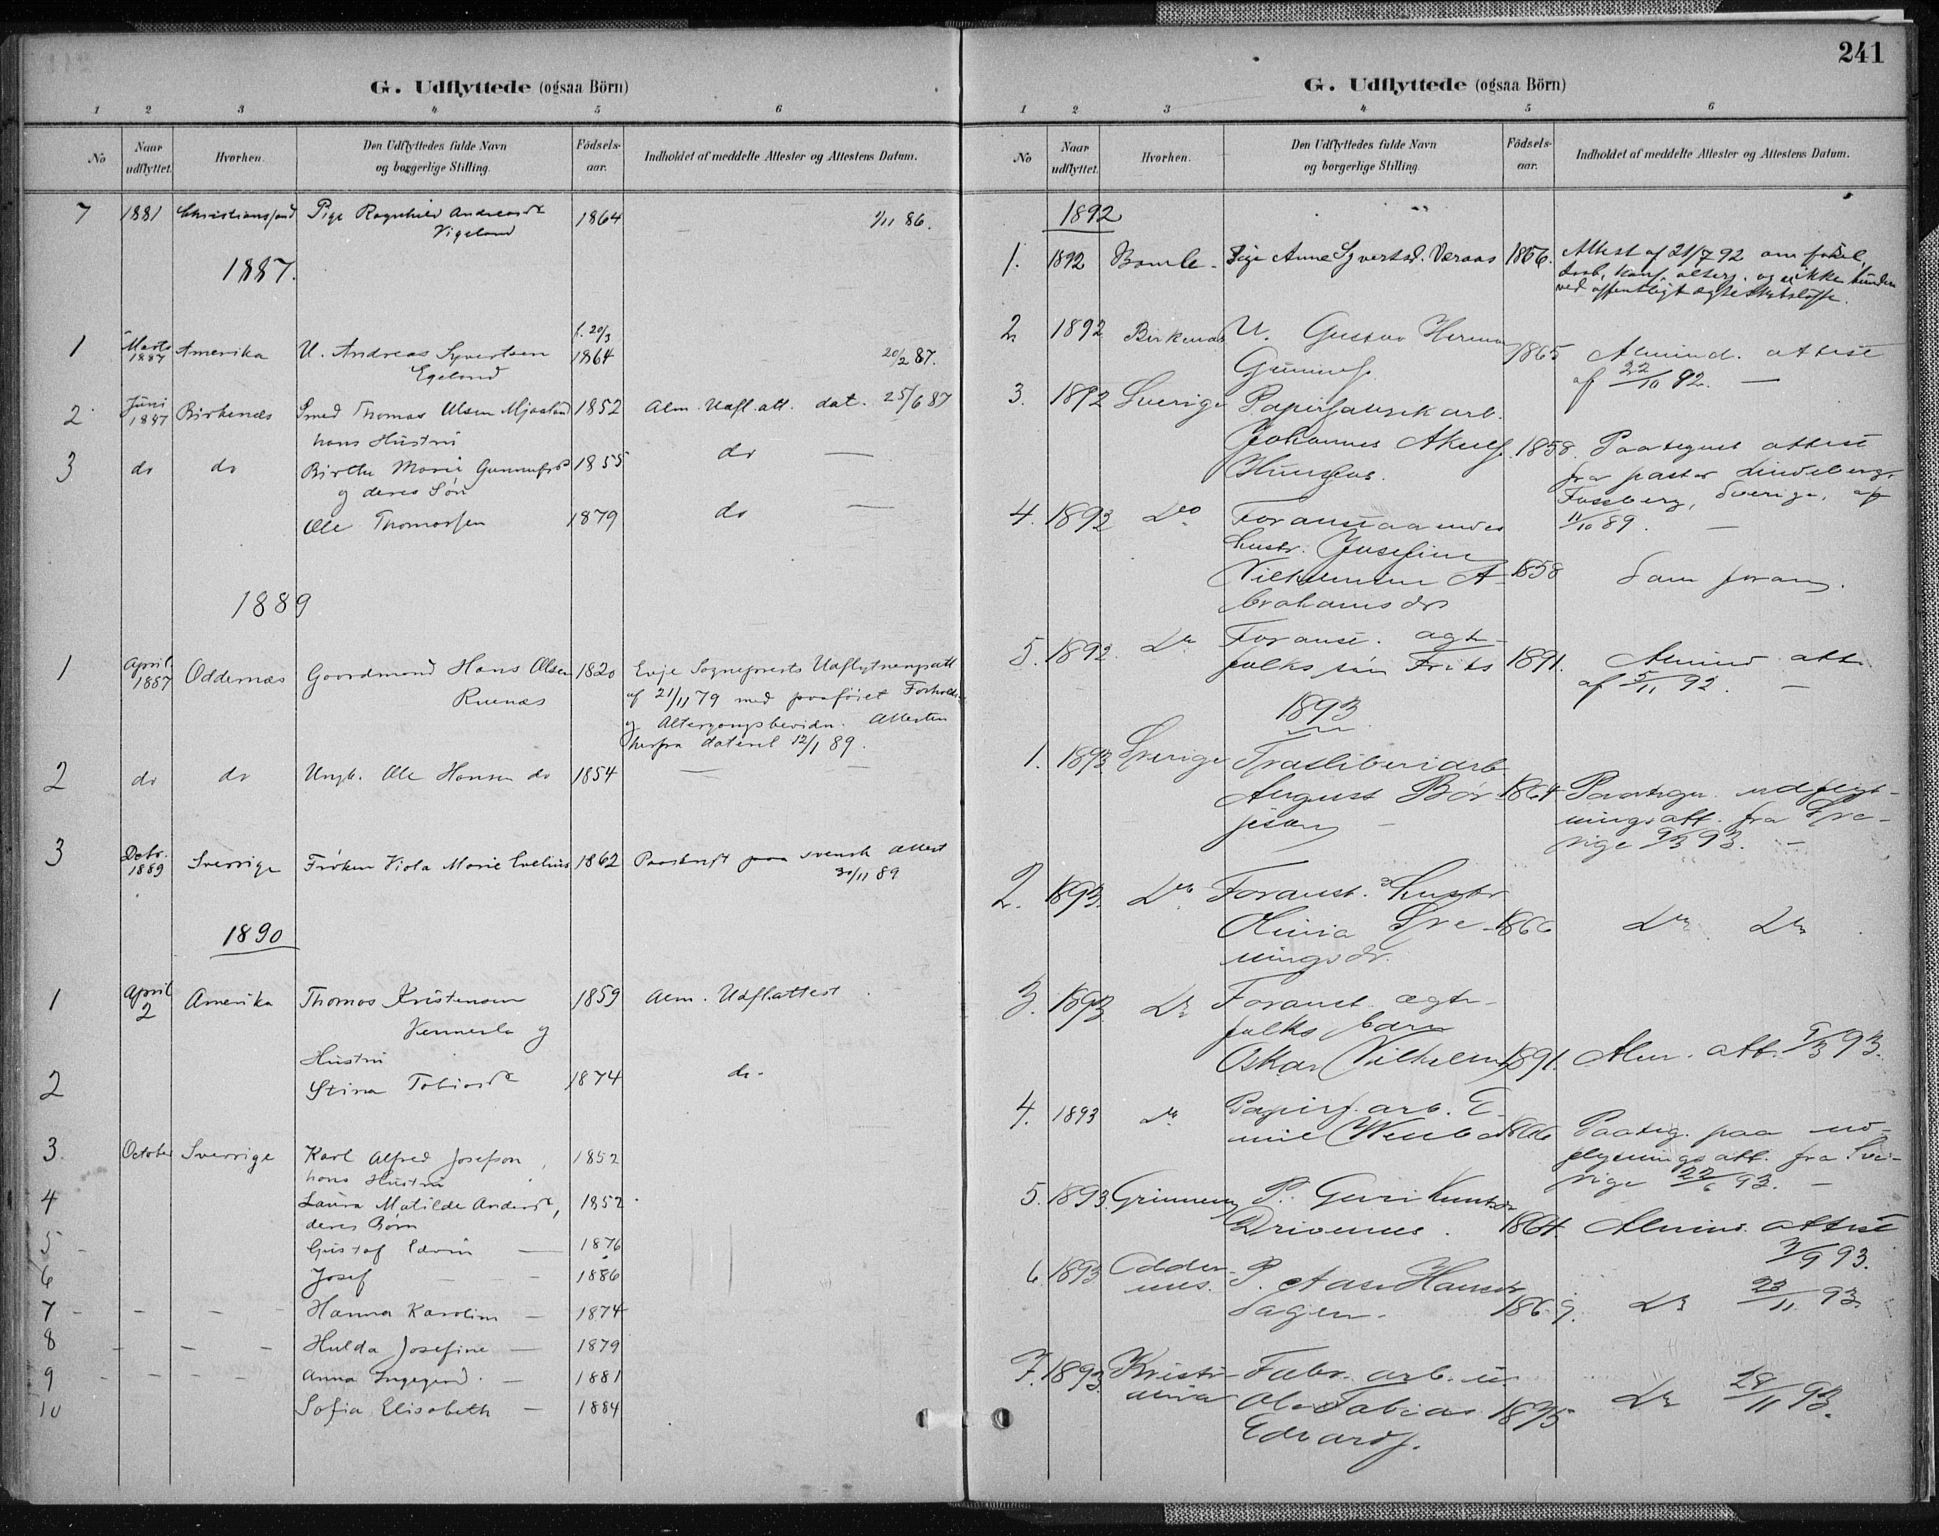 G. Udflyttede (ogsaa Börn)
1 2 3 4 5 6
No Naar udflyttet. Hvorhen. Den Udflyttedes fulde Navn og borgerlige Stilling. Födsels-aar. Indholdet af meddelte Attester og Attestens Datum.
7 1881 Christianssand Pige Ragnhild Andreasdr 1864 1/11 86.
Vigeland
1887.
1 Marts 1887 Amerika U. Andreas Syvertsen f. 20/3 1864 20/2 87.
Egeland
2 Juni 1887 Birkenæs Smed Thomas Olsen Mjaaland 1852 Alm. Udfl. att. dat. 25/6 87
hans Hustru
3 do do Birthe Marie Gunnufsdr 1855 do —
og deres Søn
Ole Thomassen 1879 do —
1889
1 April 1887 Oddernæs Gaardmand Hans Olsen 1820 Evje Sogneprests Udflytningsatt
Ruenæs af 21/11 79 med paaføiet Forholds-
og Altergangsbevidn. Attesten
herfra dateret 12/1 89.
2 do do Ungk. Ole Hansen do 1854 — —
3 Debr. 1889 Sverrige Frøken Viola Marie Evelius 1862 Paaskrift paa svensk Attest
30/11 89
1890
1 April 2 Amerika Thomas Kristensen 1859 Alm. Udfl.attest.
Vennesla og
Hustru
2 Stina Tobiasdr 1874 do-
3. October Sverrige Karl Alfred Josefson, 1852
hans Hustru
4 Laura Matilde Andersdr, 1852
deres Børn
5 - Gustaf Edvin — 1876
6 Josef - - - 1886
7 - - - - Hanna Karolin — 1874
8 - - - Hulda Josefine — 1879
9 - - - - Anna Ingegerd. — 1881
10 Sofia Elisabeth — 1884
241
G. Udflyttede (ogsaa Börn)
1 2 3 4 5 6
No Naar udflyttet. Hvorhen. Den Udflyttedes fulde Navn og borgerlige Stilling. Födsels-aar. Indholdet af meddelte Attester og Attestens Datum.
1892
1. 1892 Bamle - Pige Anne Syvertsd. Væraas 1856. Attest af 21/7 92 om fødsel,
daab, konf, alterg. og ei ikke bunden
ved offentligt ægteskabsløfte.
2. 1892 Birkenæs U. Gustav Herman 1865 Almind. attest
Gunnufs. af 22/10 92. —
3. 1892 Sverige Papirfabrik arb.
Johannes Akulf 1858. Paategnet attest
fra pastor Lindeberg,
Fossberg, Sverige, af
11/10 89. —
4. 1892 Do Foranstaaendes
hustr. Josefine
Vilhelmine A- 1858 Som foran.
brahamsdr
5. 1892. Do Foranst. ægte-
folks søn Frits 1891. Almind. att.
af 5/11 92. —
1893
1. 1893 Sverige Træsliberiarb.
August Bör- 1864 Paategn. udflyt-
jeson — ningsatt. fra Sve-
rige 9/3 93. —
2. 1893. Do Foranst. Hustr
Olivia Sve- 1866 Do Do
ningsdr.
3. 1893. Do Foranst. ægte-
folks barn
Oskar Vilhelm 1891. Alm. att. 9/3 93.
4. 1893 Do Papirf. arb. E-
mil 1866 Paateg. paa ud-
flytnings att. fra Sve-
rige 22/6 93. —
5. 1893. P. Guri Knutsdr
Drivenes. 1864. Almind. attest
7/9 93.
6. 1893 Odder-
næs. P. Aase Hansdr
Sagen. 1869. Do 23/11 93.
7. 1893. Kristi-
ania Fabr. arb. u.
Ole Tobias 1875 Do 28/11 93.
Edvards.